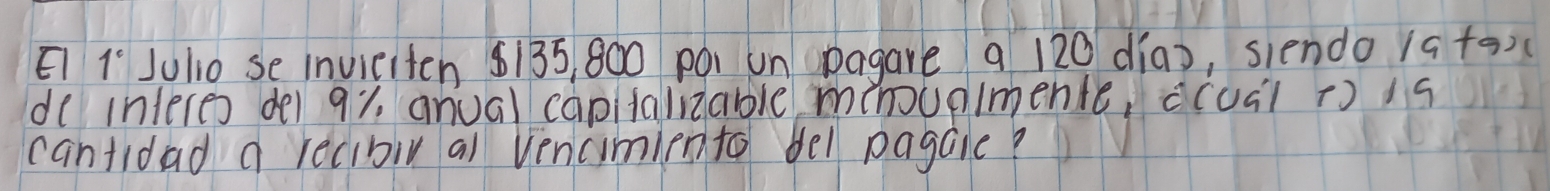 El 1° Julio se invierten $135,800 por un pagare a 120 días, siendo la tasa
de interes del 9% anual capitalizable mensualmente, ¿cuál es la
cantidad a recibir al vencimiento del pagare?